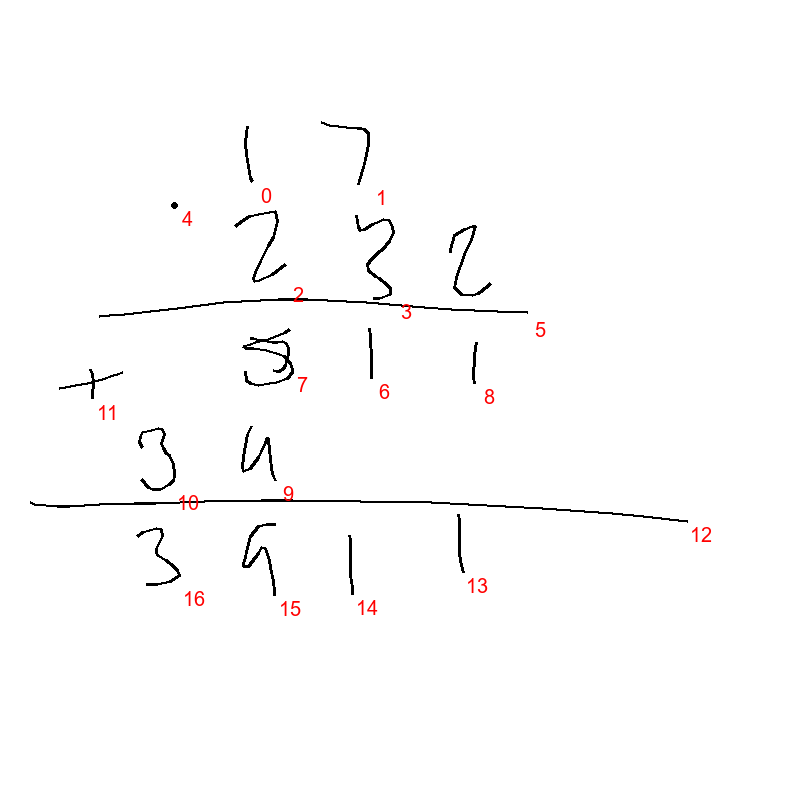 1 7
0 1
· 4
2 3 2
2 3 5
+ 5 1 1
11 7 6 8
3 4
10 9 12
3 9 1 1
16 15 14 13